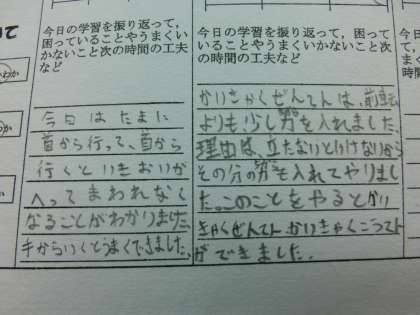 今日の学習を振り返って,
困っていることやうまくい
かないこと次の時間の工夫
など
今日はたまに
首から行って、首から
行くといきおいが
へってまわれなく
なることがわかりました。
手からいくとうまくできました。
今日の学習を振り返って,困って
いることやうまくいかないこと次
の時間の工夫など
かいきゃくぜんてんは、前転
よりも少し勢を入れました。
理由は、立たないといけないから
その分の勢も入れてやりまし
た。このことをやるとかい
きゃくぜんてんかいきゃくこうてん
ができました。
今日
いる
の時